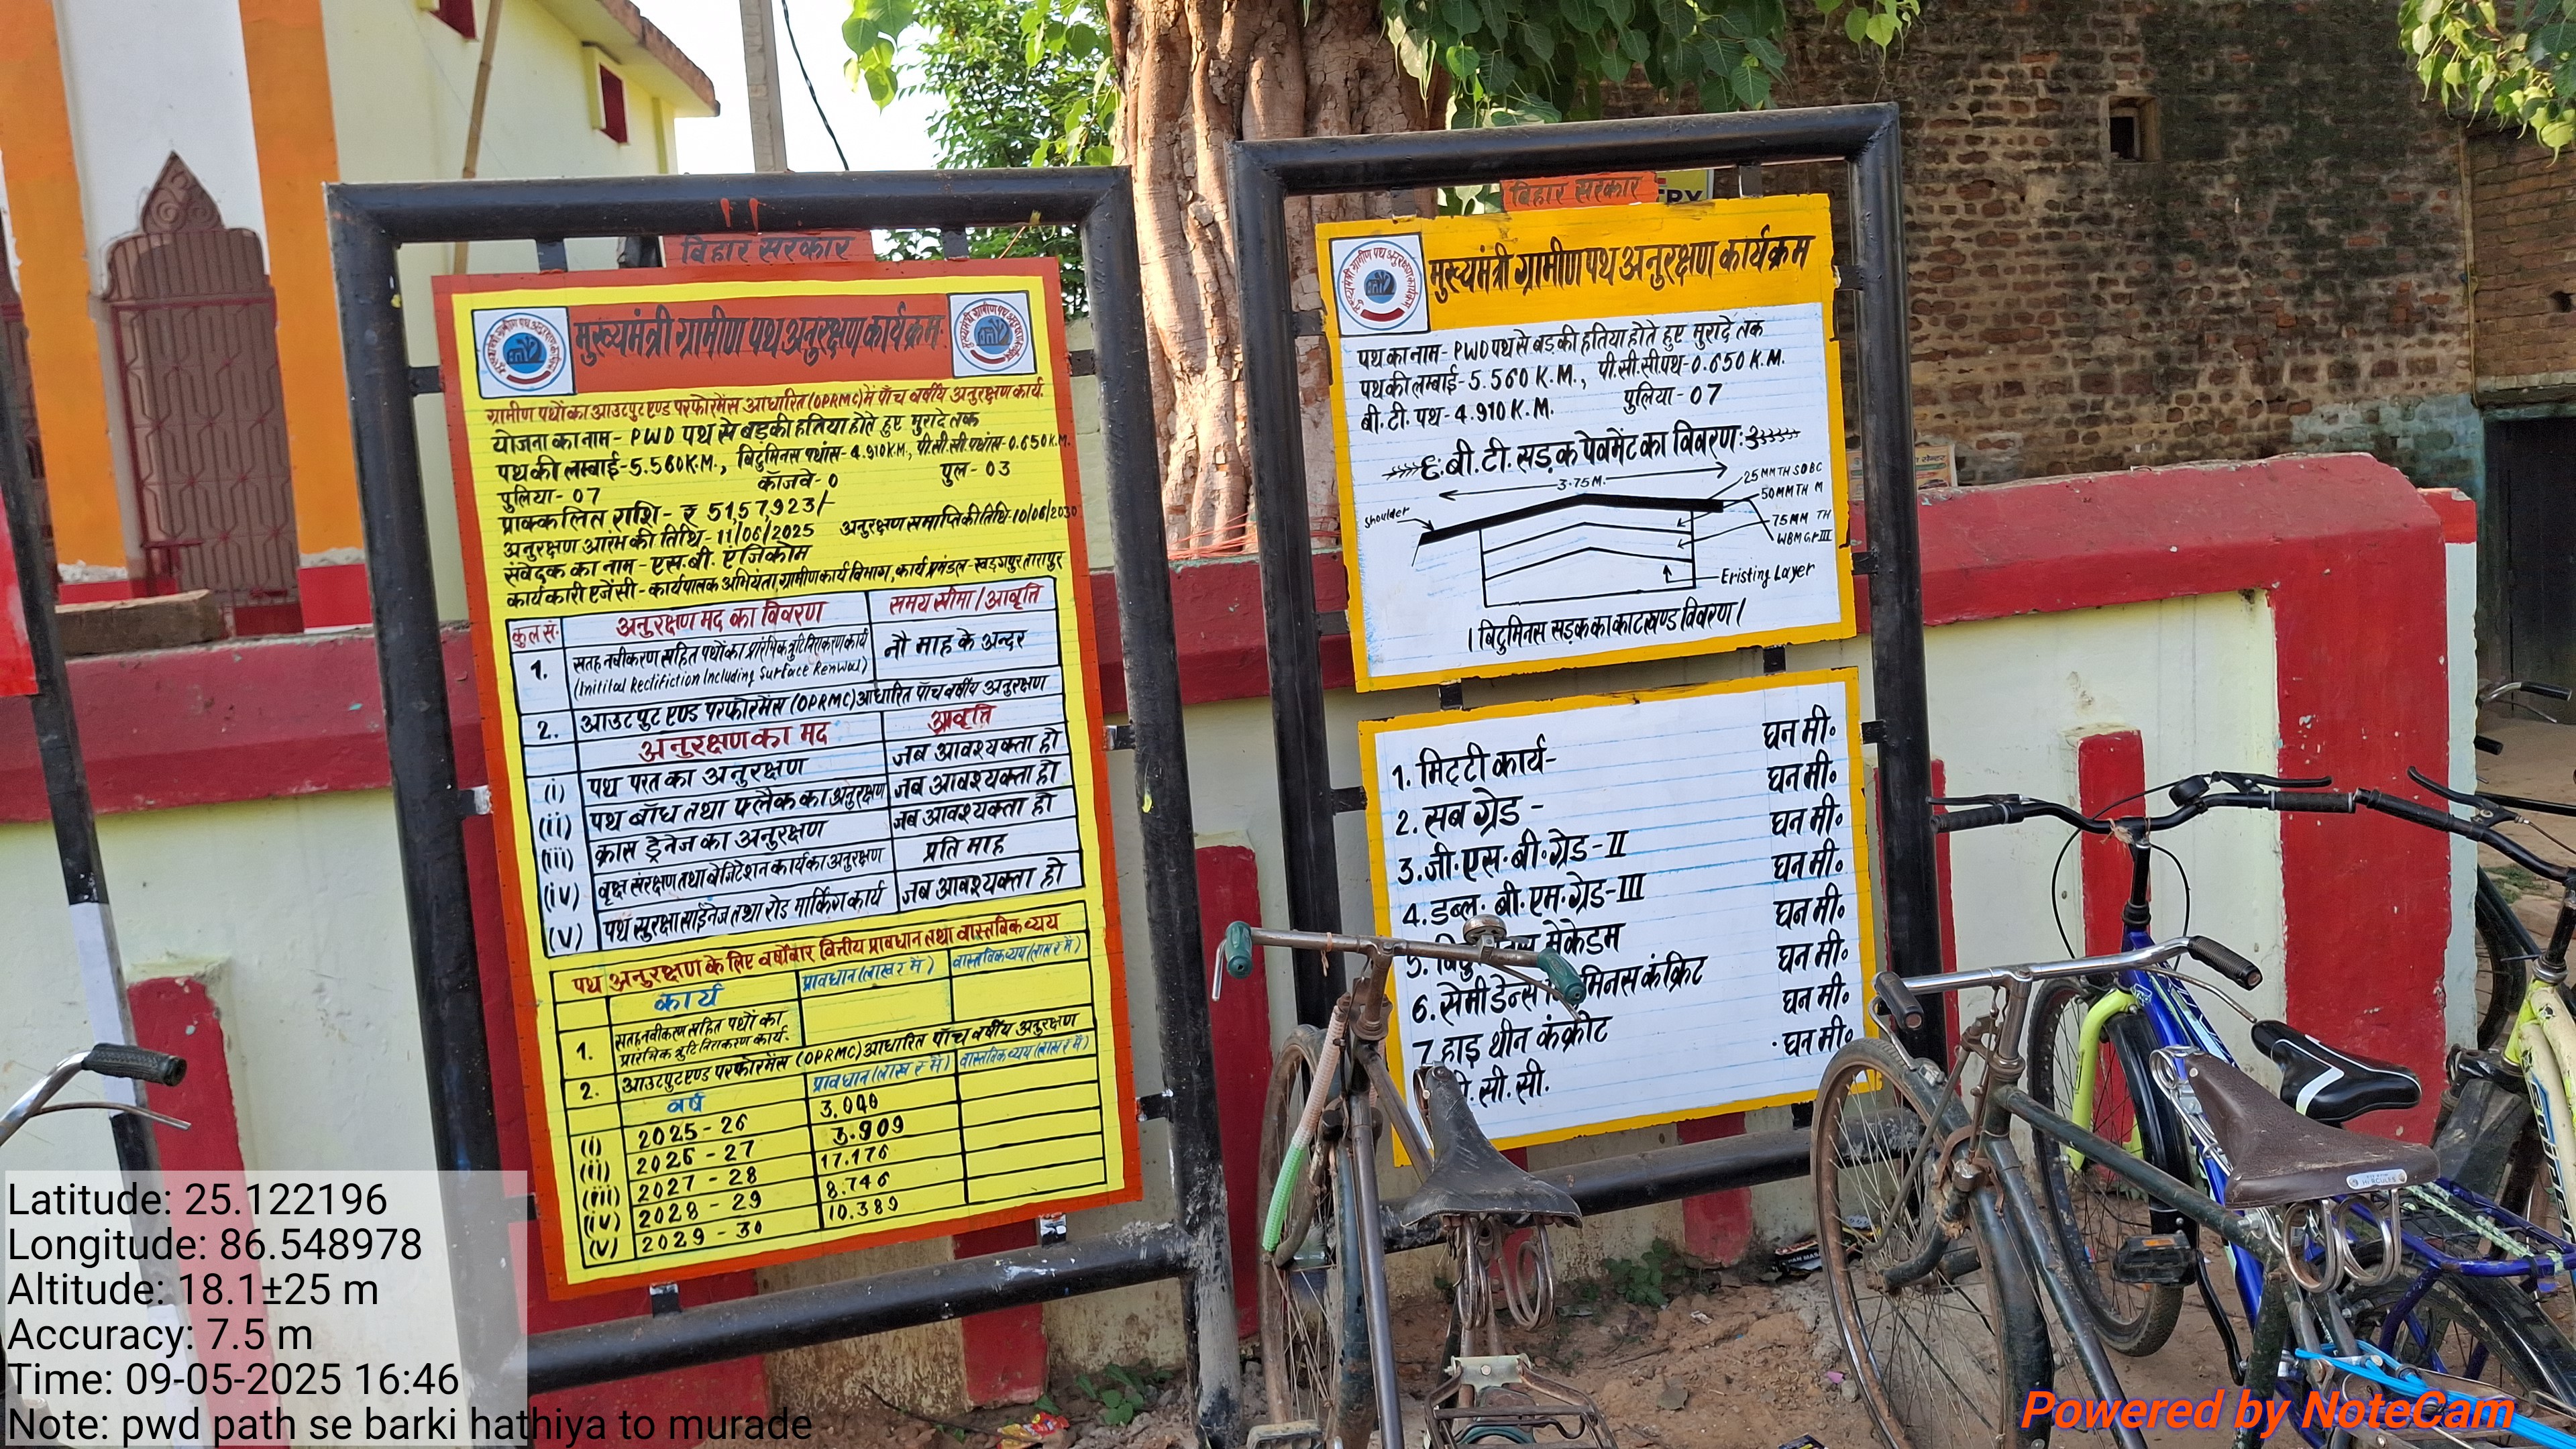 बिहार सरकार
मुख्यमंत्री ग्रामीण पथ अनुरक्षण कार्यक्रम
ग्रामीण पथों का आउटपुट एण्ड परफोरमेंस आधारित (OPRMC) में पाँच वर्षीय अनुरक्षण कार्य.
योजना का नाम - PWD पथ से बड़की हतिया होते हुए मुरादे तक
पथ की लम्बाई - 5.560 K.M., बिटुमिनस पथांस - 4.910 K.M., पी.सी.सी. पथांस - 0.650 K.M.
पुलिया - 07 कॉजवे - 0 पुल - 03
प्राक्कलित राशि - ₹ 5157923/-
अनुरक्षण आरंभ की तिथि - 11/06/2025 अनुरक्षण समाप्ति की तिथि - 10/06/2030
संवेदक का नाम - एस.बी. एजिकॉम
कार्यकारी एजेंसी - कार्यपालक अभियंता, ग्रामीण कार्य विभाग, कार्य प्रमंडल - खड़गपुर तारापुर
कुल सं. अनुरक्षण मद का विवरण समय सीमा / आवृत्ति
1. सतह नवीकरण सहित पथों का प्रारंभिक त्रुटि निराकरण कार्य नौ माह के अन्दर
(Initital Rectifiction Including Surface Renwal)
2. आउटपुट एण्ड परफोरमेंस (OPRMC) आधारित पाँच वर्षीय अनुरक्षण
अनुरक्षण का मद आवृत्ति
(i) पथ परत का अनुरक्षण जब आवश्यक्ता हो
(ii) पथ बाँध तथा फ्लैंक का अनुरक्षण जब आवश्यक्ता हो
(iii) क्रास ड्रेनेज का अनुरक्षण जब आवश्यक्ता हो
(iv) वृक्ष संरक्षण तथा वेजिटेशन कार्य का अनुरक्षण प्रति माह
(V) पथ सुरक्षा साईनेज तथा रोड मार्किंग कार्य जब आवश्यक्ता हो
पथ अनुरक्षण के लिए वर्षोवार वित्तीय प्रावधान तथा वास्तविक व्यय
कार्य प्रावधान (लाख र में) वास्तविक व्यय (लाख र में)
1. सतह नवीकरण सहित पथों का
प्रारंभिक त्रुटि निराकरण कार्य.
2. आउटपुट एण्ड परफोरमेंस (OPRMC) आधारित पाँच वर्षीय अनुरक्षण
वर्ष प्रावधान (लाख र में) वास्तविक व्यय (लाख र में)
(i) 2025-26 3.040
(ii) 2026-27 3.909
(iii) 2027-28 17.176
(iv) 2028-29 8.746
(V) 2029-30 10.389
बिहार सरकार
मुख्यमंत्री ग्रामीण पथ अनुरक्षण कार्यक्रम
पथ का नाम - PWD पथ से बड़की हतिया होते हुए मुरादे तक
पथ की लम्बाई - 5.560 K.M., पी.सी.सी पथ - 0.650 K.M.
बी.टी. पथ - 4.910 K.M. पुलिया - 07
बी.टी. सड़क पेवमेंट का विवरण:
3.75 M.
25 MM TH SDBC
50 MM TH M
75 MM TH
WBM Gr III
Shoulder
Eristing Layer
। बिटुमिनस सड़क का काटखण्ड विवरण ।
1. मिट्टी कार्य- घन मी॰
2. सब ग्रेड - घन मी॰
3. जी.एस.बी. ग्रेड-II घन मी॰
4. डब्लू. बी. एम. ग्रेड-III घन मी॰
5. मेकेडम घन मी॰
6. सेमी डेन्स मिनस कंक्रिट घन मी॰
7. हाइ थीन कंक्रीट घन मी॰
सी. सी. घन मी॰
Latitude: 25.122196
Longitude: 86.548978
Altitude: 18.1±25 m
Accuracy: 7.5 m
Time: 09-05-2025 16:46
Note: pwd path se barki hathiya to murade
Powered by NoteCam